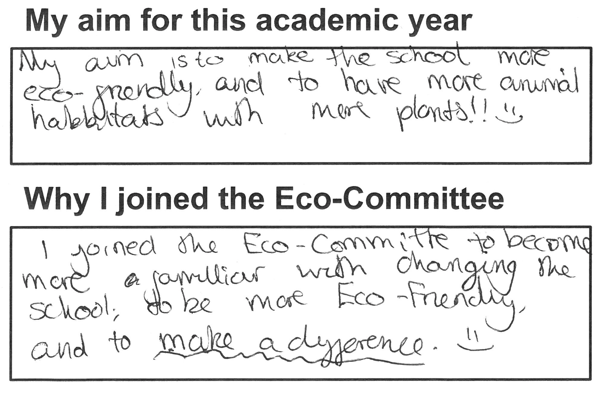 My aim for this academic year
My aim is to make the school more
eco-friendly, and to have more animal
habbitats with more plants!! :)
Why I joined the Eco-Committee
I joined the Eco-Committe to become
more a familliar with changing the
school, to be more Eco-Friendly,
and to make a dyfference. :)